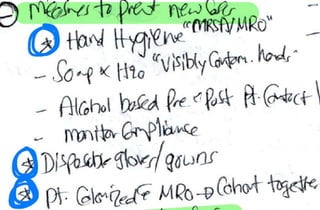 Measures to prevent new Cases
"MRSA/MRO"
Hand Hygiene
- Soap & H2O "Visibly Contam. hands"
- Alcohol based Pre & Post Pt. Contact
- monitor Compliance
Disposable gloves/gowns
Pt. Colonized c MRO → Cohort together